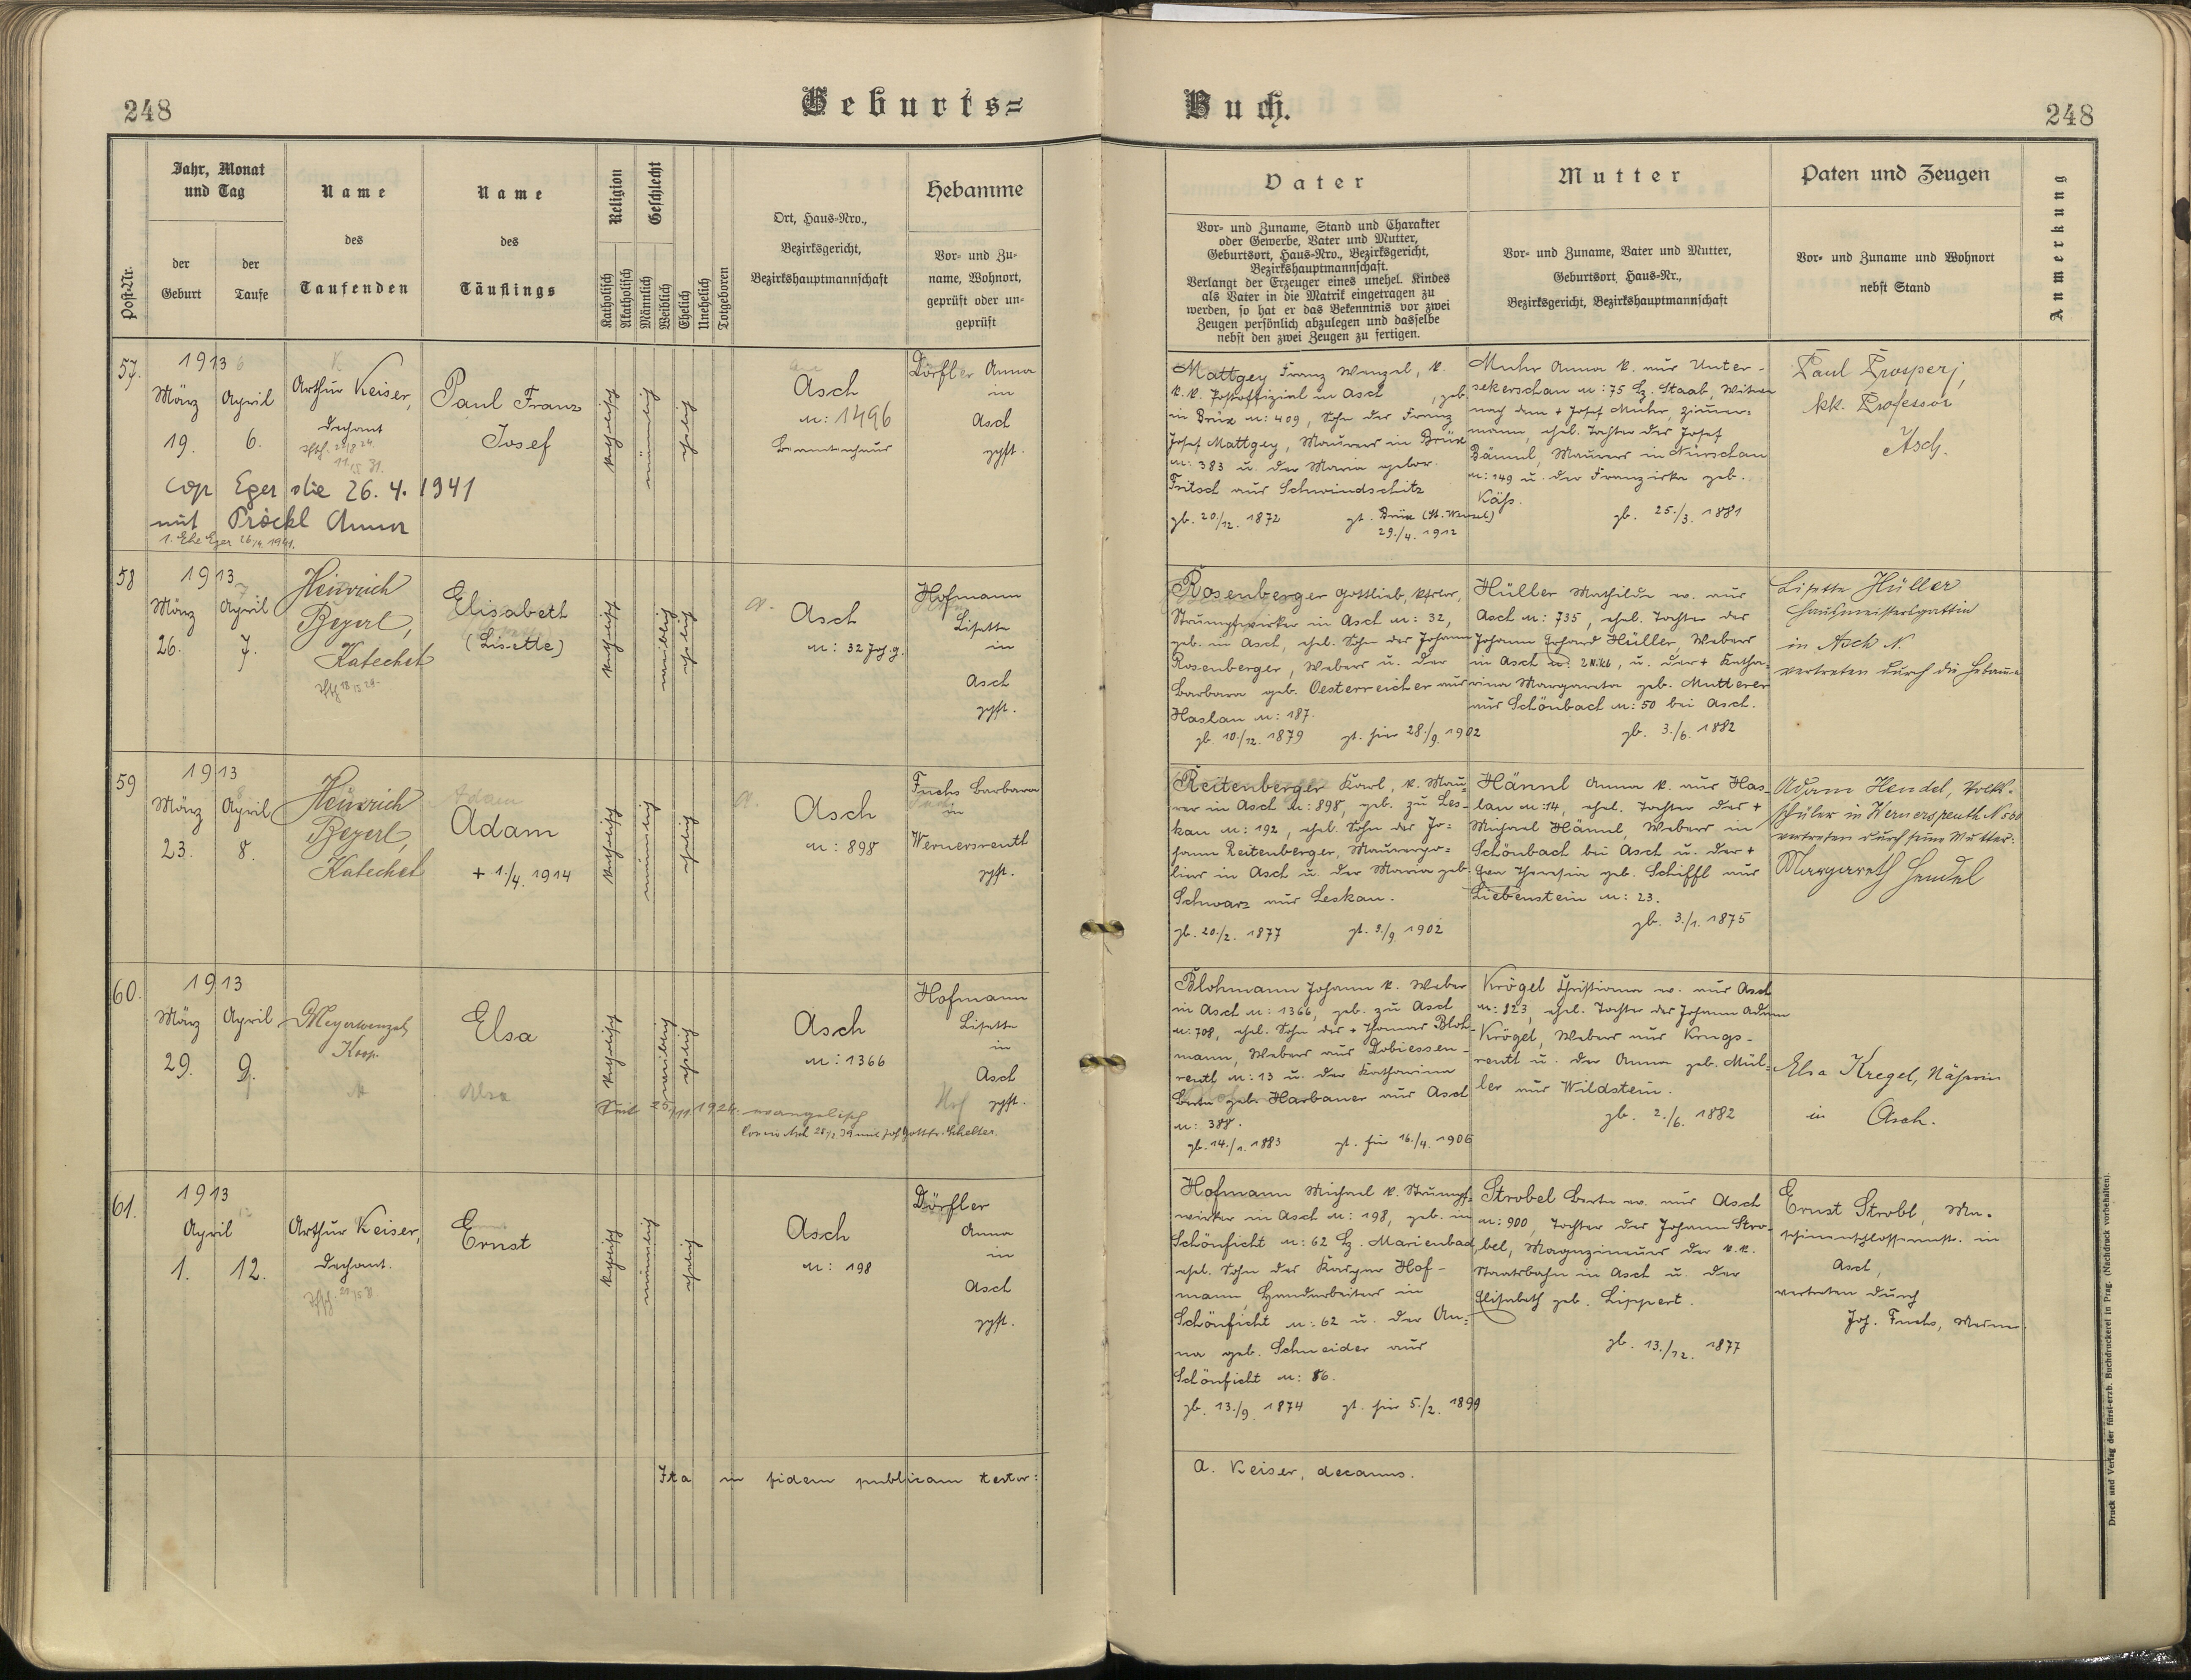 248
Geburts=
Buch.
248
Post-Nr.
Jahr, Monat
und Tag
der
Geburt
der
Taufe
Name
des
Taufenden
Name
des
Täuflings
Religion
Katholisch
Akatholisch
Geschlecht
Männlich
Weiblich
Ehelich
Unehelich
Totgeboren
Ort, Haus-Nro.,
Bezirksgericht,
Bezirkshauptmannschaft
Hebamme
Vor- und Zu-
name, Wohnort,
geprüft oder un-
geprüft
Vater
Vor- und Zuname, Stand und Charakter
oder Gewerbe, Vater und Mutter,
Geburtsort, Haus-Nro., Bezirksgericht,
Bezirkshauptmannschaft.
Verlangt der Erzeuger eines unehel. Kindes
als Vater in die Matrik eingetragen zu
werden, so hat er das Bekenntnis vor zwei
Zeugen persönlich abzulegen und dasselbe
nebst den zwei Zeugen zu fertigen.
Mutter
Vor- und Zuname, Vater und Mutter,
Geburtsort Haus-Nr.,
Bezirksgericht, Bezirkshauptmannschaft
Paten und Zeugen
Vor- und Zuname und Wohnort
nebst Stand
Anmerkung
57.
1913
März
19.
April
6.
Arthur Keiser,
Dechant
Paul Franz
Josef
katholisch
männlich
ehelich
Asch
N: 1496
Dörfler Anna
in
Asch
gepft.
cop Eger die 26. 4. 1941
mit Pröckl Anna
1. Ehe Eger 26/4. 1941.
Mattgey Franz Wenzel, k.
k. k. Postoffizial in Asch, geb.
in Brüx N: 409, Sohn des Franz
Josef Mattgey, Maurers in Brüx
N: 383 u. der Maria gebor.
Fritsch aus Schwindschitz
gb. 20./12. 1872 gt. Brüx (St. Wenzel)
29./4. 1912
Muhr Anna k. aus Unter-
sekerschan N: 75 Bz. Staab, Witwe
nach dem + Josef Muhr, Zimmer-
mann, ehel. Tochter des Josef
Bämml, Maurers in Nürschan
N: 149 u. der Franziska geb.
Käß.
gb. 25./3. 1881
Paul Prosperj,
kk. Professor
Asch.
58
1913
März
26.
April
7.
Heinrich
Beyerl,
Katechet
Elisabeth
(Lisette)
katholisch
weiblich
ehelich
Asch
N: 32 Joh. g.
Hofmann
Lisette
in
Asch
gepft.
Rosenberger Gottlieb,
Strumpfwirker in Asch N: 32,
geb. in Asch, ehel. Sohn des Johann
Rosenberger, Webers u. der
Barbara geb. Oesterreicher aus
Haslau N: 187.
gb. 10./12. 1879 gt. hier 28./9. 1902
Hüller Mathilde ev. aus
Asch N: 735, ehel. Tochter des
Johann Erhard Hüller, Webers
in Asch, u. der + Katha-
rina Margareta geb. Mutterer
aus Schönbach N: 50 bei Asch.
gb. 3./6. 1882
Lisette Hüller
Hausmeistersgattin
in Asch N.
vertreten durch die Hebame
59
1913
März
23.
April
8.
Heinrich
Beyerl,
Katechet
Adam
+ 1./4. 1914
katholisch
männlich
ehelich
Asch
N: 898
Fuchs Barbara
in
Wernersreuth
gepft.
Reitenberger Karl, k. Mau-
rer in Asch N: 898, geb. zu Les-
kau N: 192, ehel. Sohn des Jo-
hann Reitenberger, Maurerpo-
liers in Asch u. der Maria geb.
Schwarz aus Leskau.
gb. 20./2. 1877 gt. 9./9. 1902
Hännl Anna k. aus Has-
lau N: 14, ehel. Tochter des +
Michael Hännl, Webers in
Schönbach bei Asch u. der +
Eva Theresia geb. Schiffl aus
Liebenstein N: 23.
gb. 3./1. 1875
Adam Hendel, Volks-
schüler in Wernersreuth N: 60
vertreten durch seine Mutter:
Margareth Hendel
60.
1913
März
29.
April
9.
Meyerwenzel,
Koop.
Elsa
katholisch
weiblich
ehelich
Asch
N: 1366
Hofmann
Lisette
in
Asch
gepft.
Seit 25/11 1924. evangelisch
Blohmann Johann k. Weber
in Asch N: 1366, geb. zu Asch
N: 708, ehel. Sohn des + Thomas Bloh-
mann, Webers aus Dobiessen-
reuth N: 13 u. der Katharina
Berta geb. Harbauer aus Asch
N: 388.
gb. 14./1. 1883 gt. hier 16./4. 1906
Krögel Christiana ev. aus Asch
N: 823, ehel. Tochter des Johann Adam
Krögel, Webers aus Krugs-
reuth u. der Anna geb. Mül-
ler aus Wildstein.
gb. 2./6. 1882
Elsa Kregel, Näherin
in Asch.
61.
1913
April
1.
12.
Arthur Keiser,
Dechant.
Ernst
katholisch
männlich
ehelich
Asch
N: 198
Dörfler
Anna
in
Asch
gepft.
Hofmann Michael k. Strumpf-
wirker in Asch N: 198, geb. in
Schönficht N: 62 Bz. Marienbad,
ehel. Sohn des Kaspar Hof-
mann, Handarbeiters in
Schönficht N: 62 u. der An-
na geb. Schneider aus
Schönficht N: 86.
gb. 13./9. 1874 gt. hier 5./2. 1899
Strobel Berta ev. aus Asch
N: 900, Tochter des Johann Stro-
bel, Magazineurs der k. k.
Staatsbahn in Asch u. der
Elisabeth geb. Lippert.
gb. 13./12. 1877
Ernst Strobl, Ma-
schinenschlosser in
Asch,
vertreten durch
Joh. Fuchs,
Ita in fidem publicam testor:
A. Keiser, decanus.
Druck und Verlag der fürst-erzb. Buchdruckerei in Prag. (Nachdruck vorbehalten).